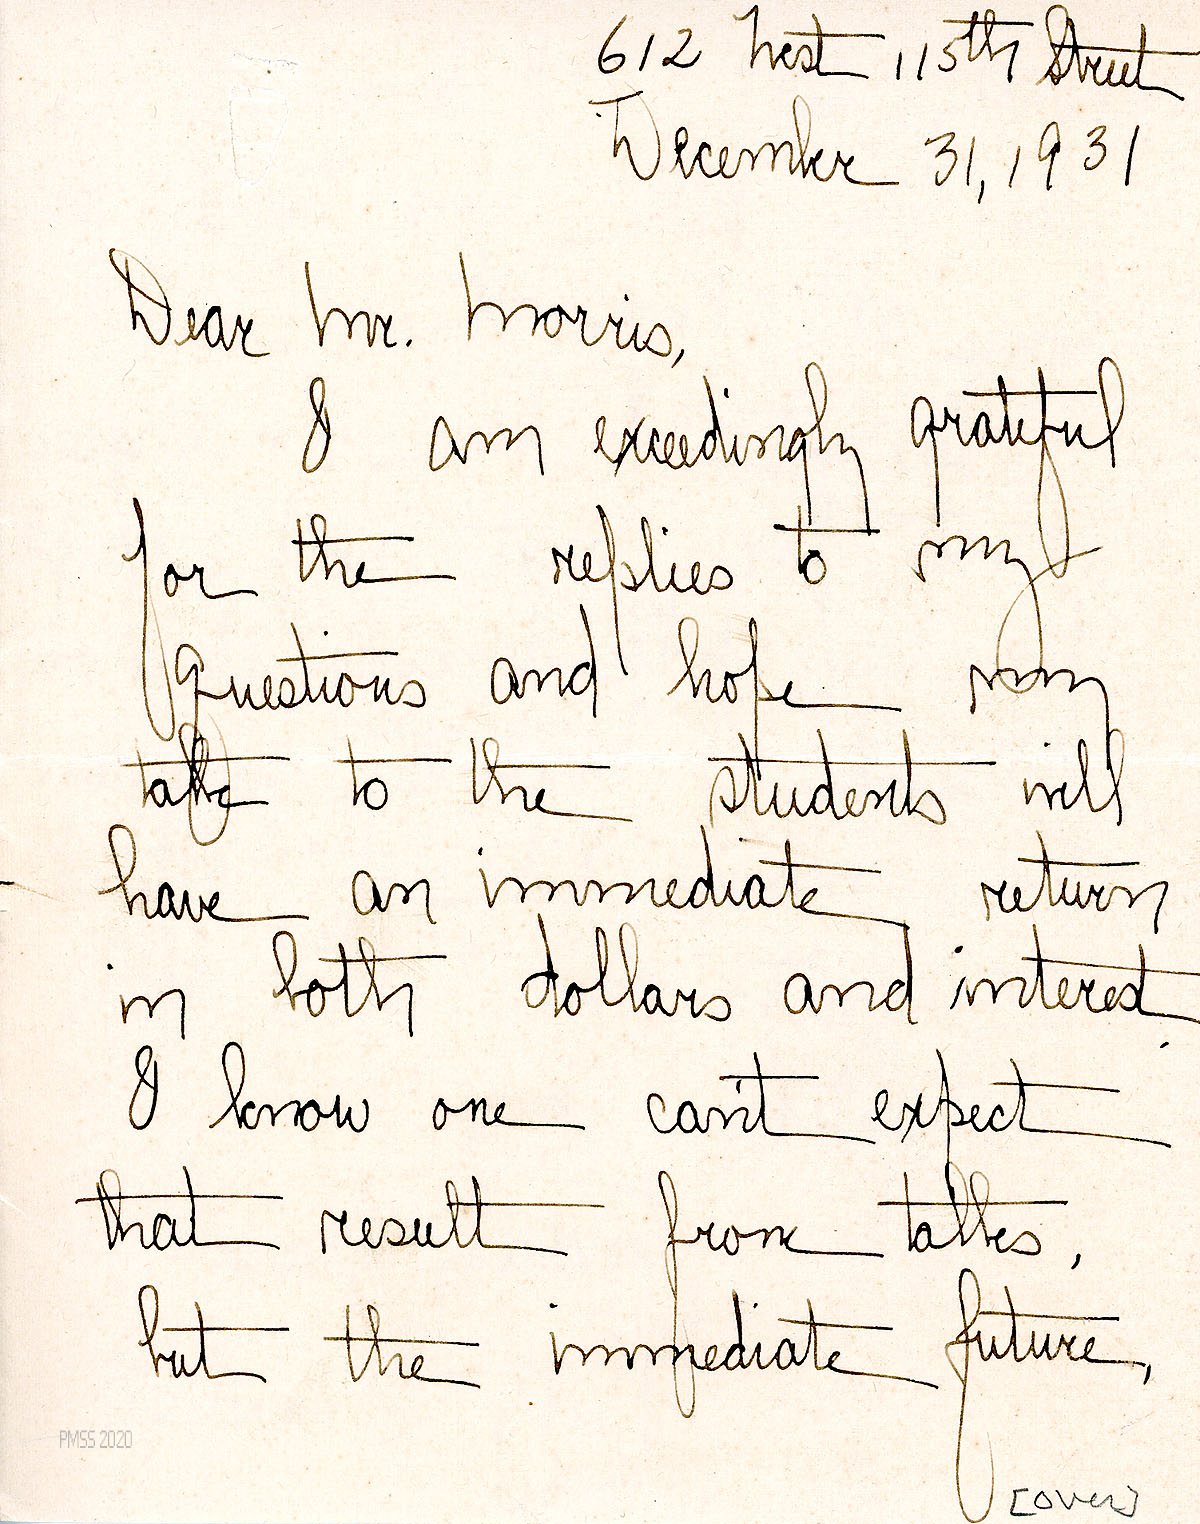 612 West 115th Street
December 31, 1931
Dear Mr. Morris,
I am exceedingly grateful
for the replies to my
questions and hope my
talk to the students will
have an immediate return
in both dollars and interest.
I know one can't expect
that result from talks,
but the immediate future,
PMSS 2020
[over]